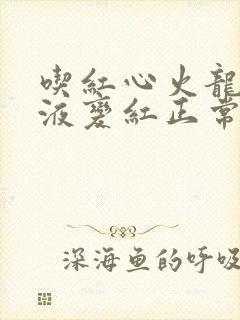 喫紅心火龍
液變紅正常
深海魚的呼吸